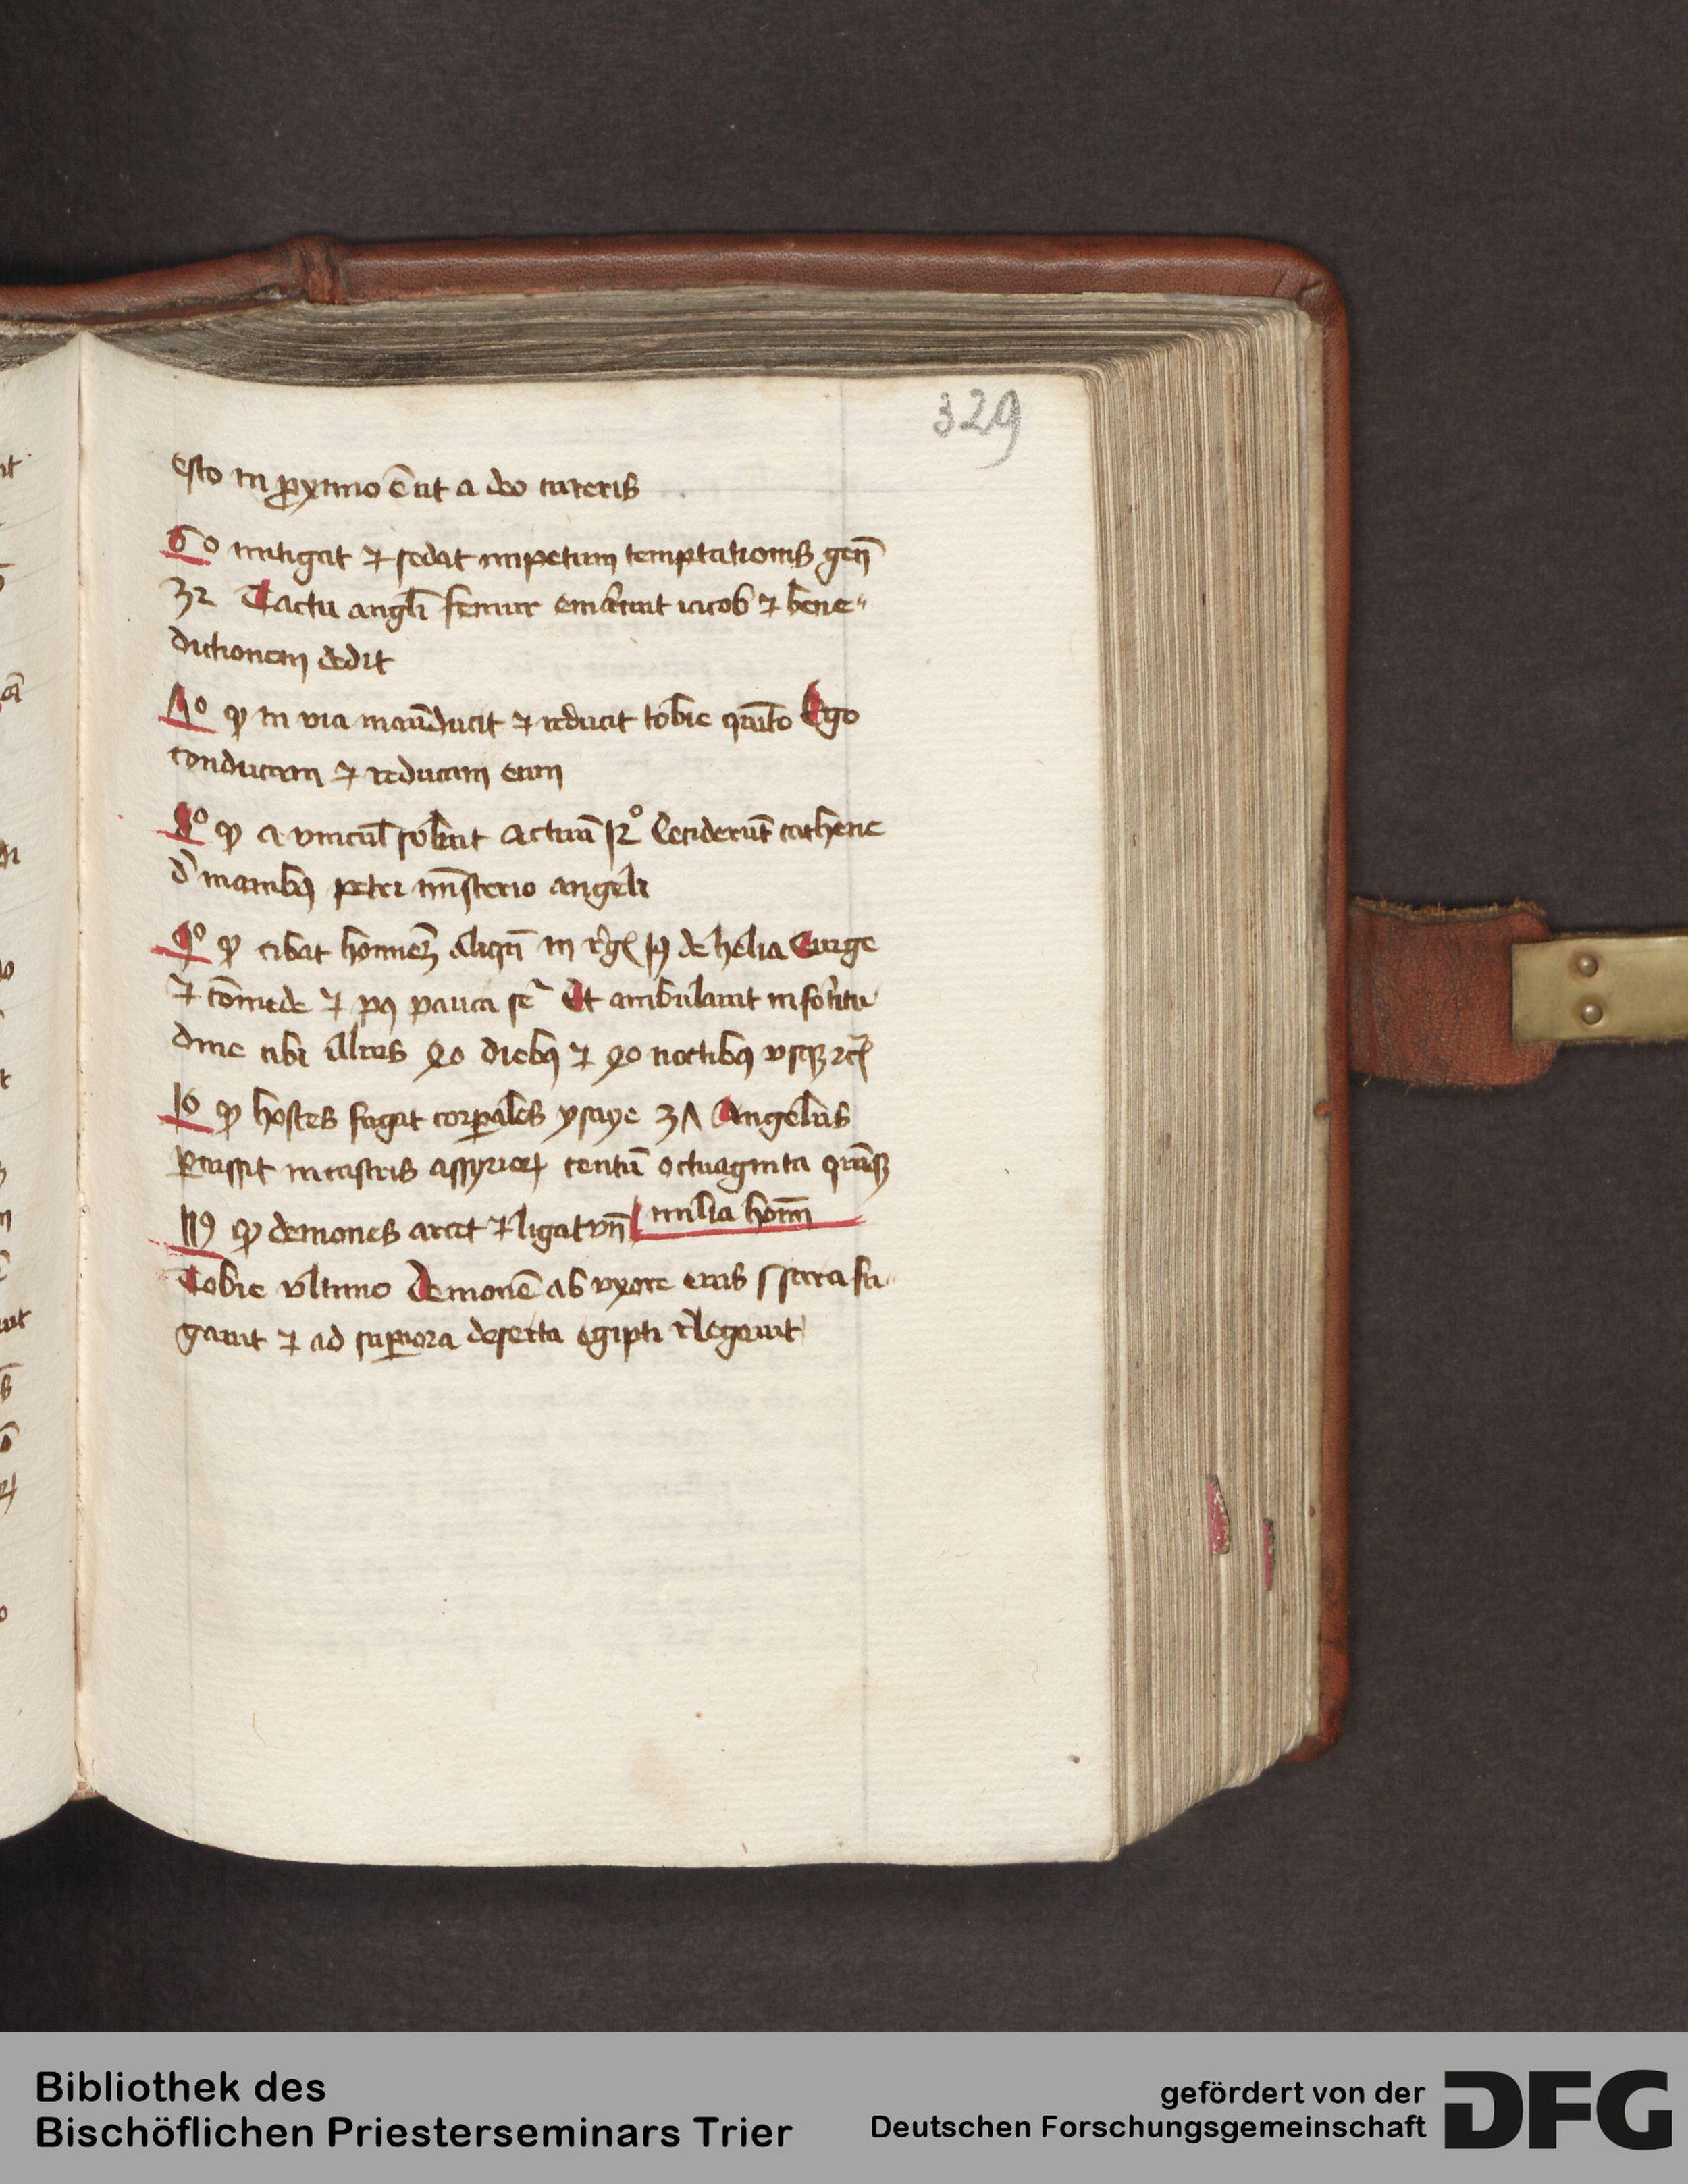 329
esto in ꝓximo ē ut a deo cureris
6o mitigat ⁊ sedat impetum temptationis gen̄
32 Tactu angl̄i femur emarcuit iacob ⁊ bene"
dictionem dedit
7o ꝙ in via manūducit ⁊ reducit tobie quīto Ego
conducam ⁊ reducam eum
8o ꝙ a vincul̄ soluit Actuū 12o Ceciderūt cathene
d' manibꝫ petri mīsterio angeli
9o ꝙ cibat hominē aliqn̄ in reg 19 de helia Surge
⁊ comede ⁊ pꝯ pauca Et ambulauit in fortitu
dine cibi illius 40 diebꝫ ⁊ 40 noctibꝫ vsqꝫ
10 ꝙ hostes fugat corꝑales ysaye 37 Angelus
ꝑcussit in castris assyrioꝝ centū octuaginta quīqꝫ
11o ꝙ demones arcet ⁊ ligat vn̄ milia homī
Tobie vltimo Demonē ab vxore eius sara fu
gauit ⁊ ad suꝑiora deserta egipti relegauit
Bibliothek des
Bischöflichen Priesterseminars Trier
gefördert von der
Deutschen Forschungsgemeinschaft
DFG